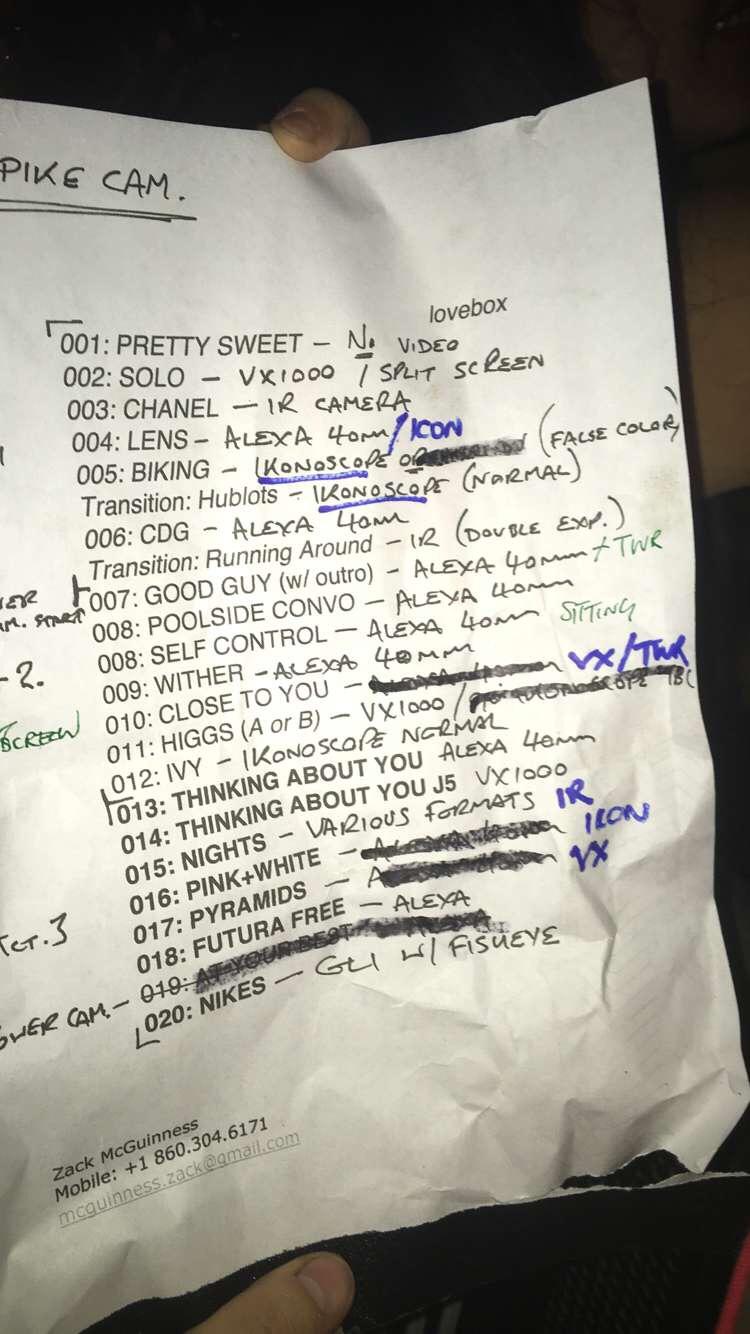 PIKE CAM.
lovebox
001: PRETTY SWEET – No VIDEO
002: SOLO – VX1000 / SPLIT SCREEN
003: CHANEL – IR CAMERA
004: LENS – ALEXA 40mm / ICON
005: BIKING – IKONOSCOPE OR (FALSE COLOR)
Transition: Hublots – IKONOSCOPE (NORMAL)
006: CDG – ALEXA 40mm
Transition: Running Around – IR (DOUBLE EXP.)
007: GOOD GUY (w/ outro) – ALEXA 40mm + TWR
008: POOLSIDE CONVO – ALEXA 40mm
008: SELF CONTROL – ALEXA 40mm SITTING
009: WITHER – ALEXA 40mm
-2.
010: CLOSE TO YOU – VX/TWR
011: HIGGS (A or B) – VX1000 / TBC
SCREEN
012: IVY – IKONOSCOPE NORMAL
013: THINKING ABOUT YOU ALEXA 40mm
014: THINKING ABOUT YOU J5 VX1000
015: NIGHTS – VARIOUS FORMATS IR
016: PINK+WHITE – ALEXA 40mm IKON
017: PYRAMIDS – VX
018: FUTURA FREE – ALEXA
019: AT YOUR BEST ALEXA
020: NIKES – GLI W/ FISHEYE
Zack McGuinness
Mobile: +1 860.304.6171
mcguinness.zack@gmail.com